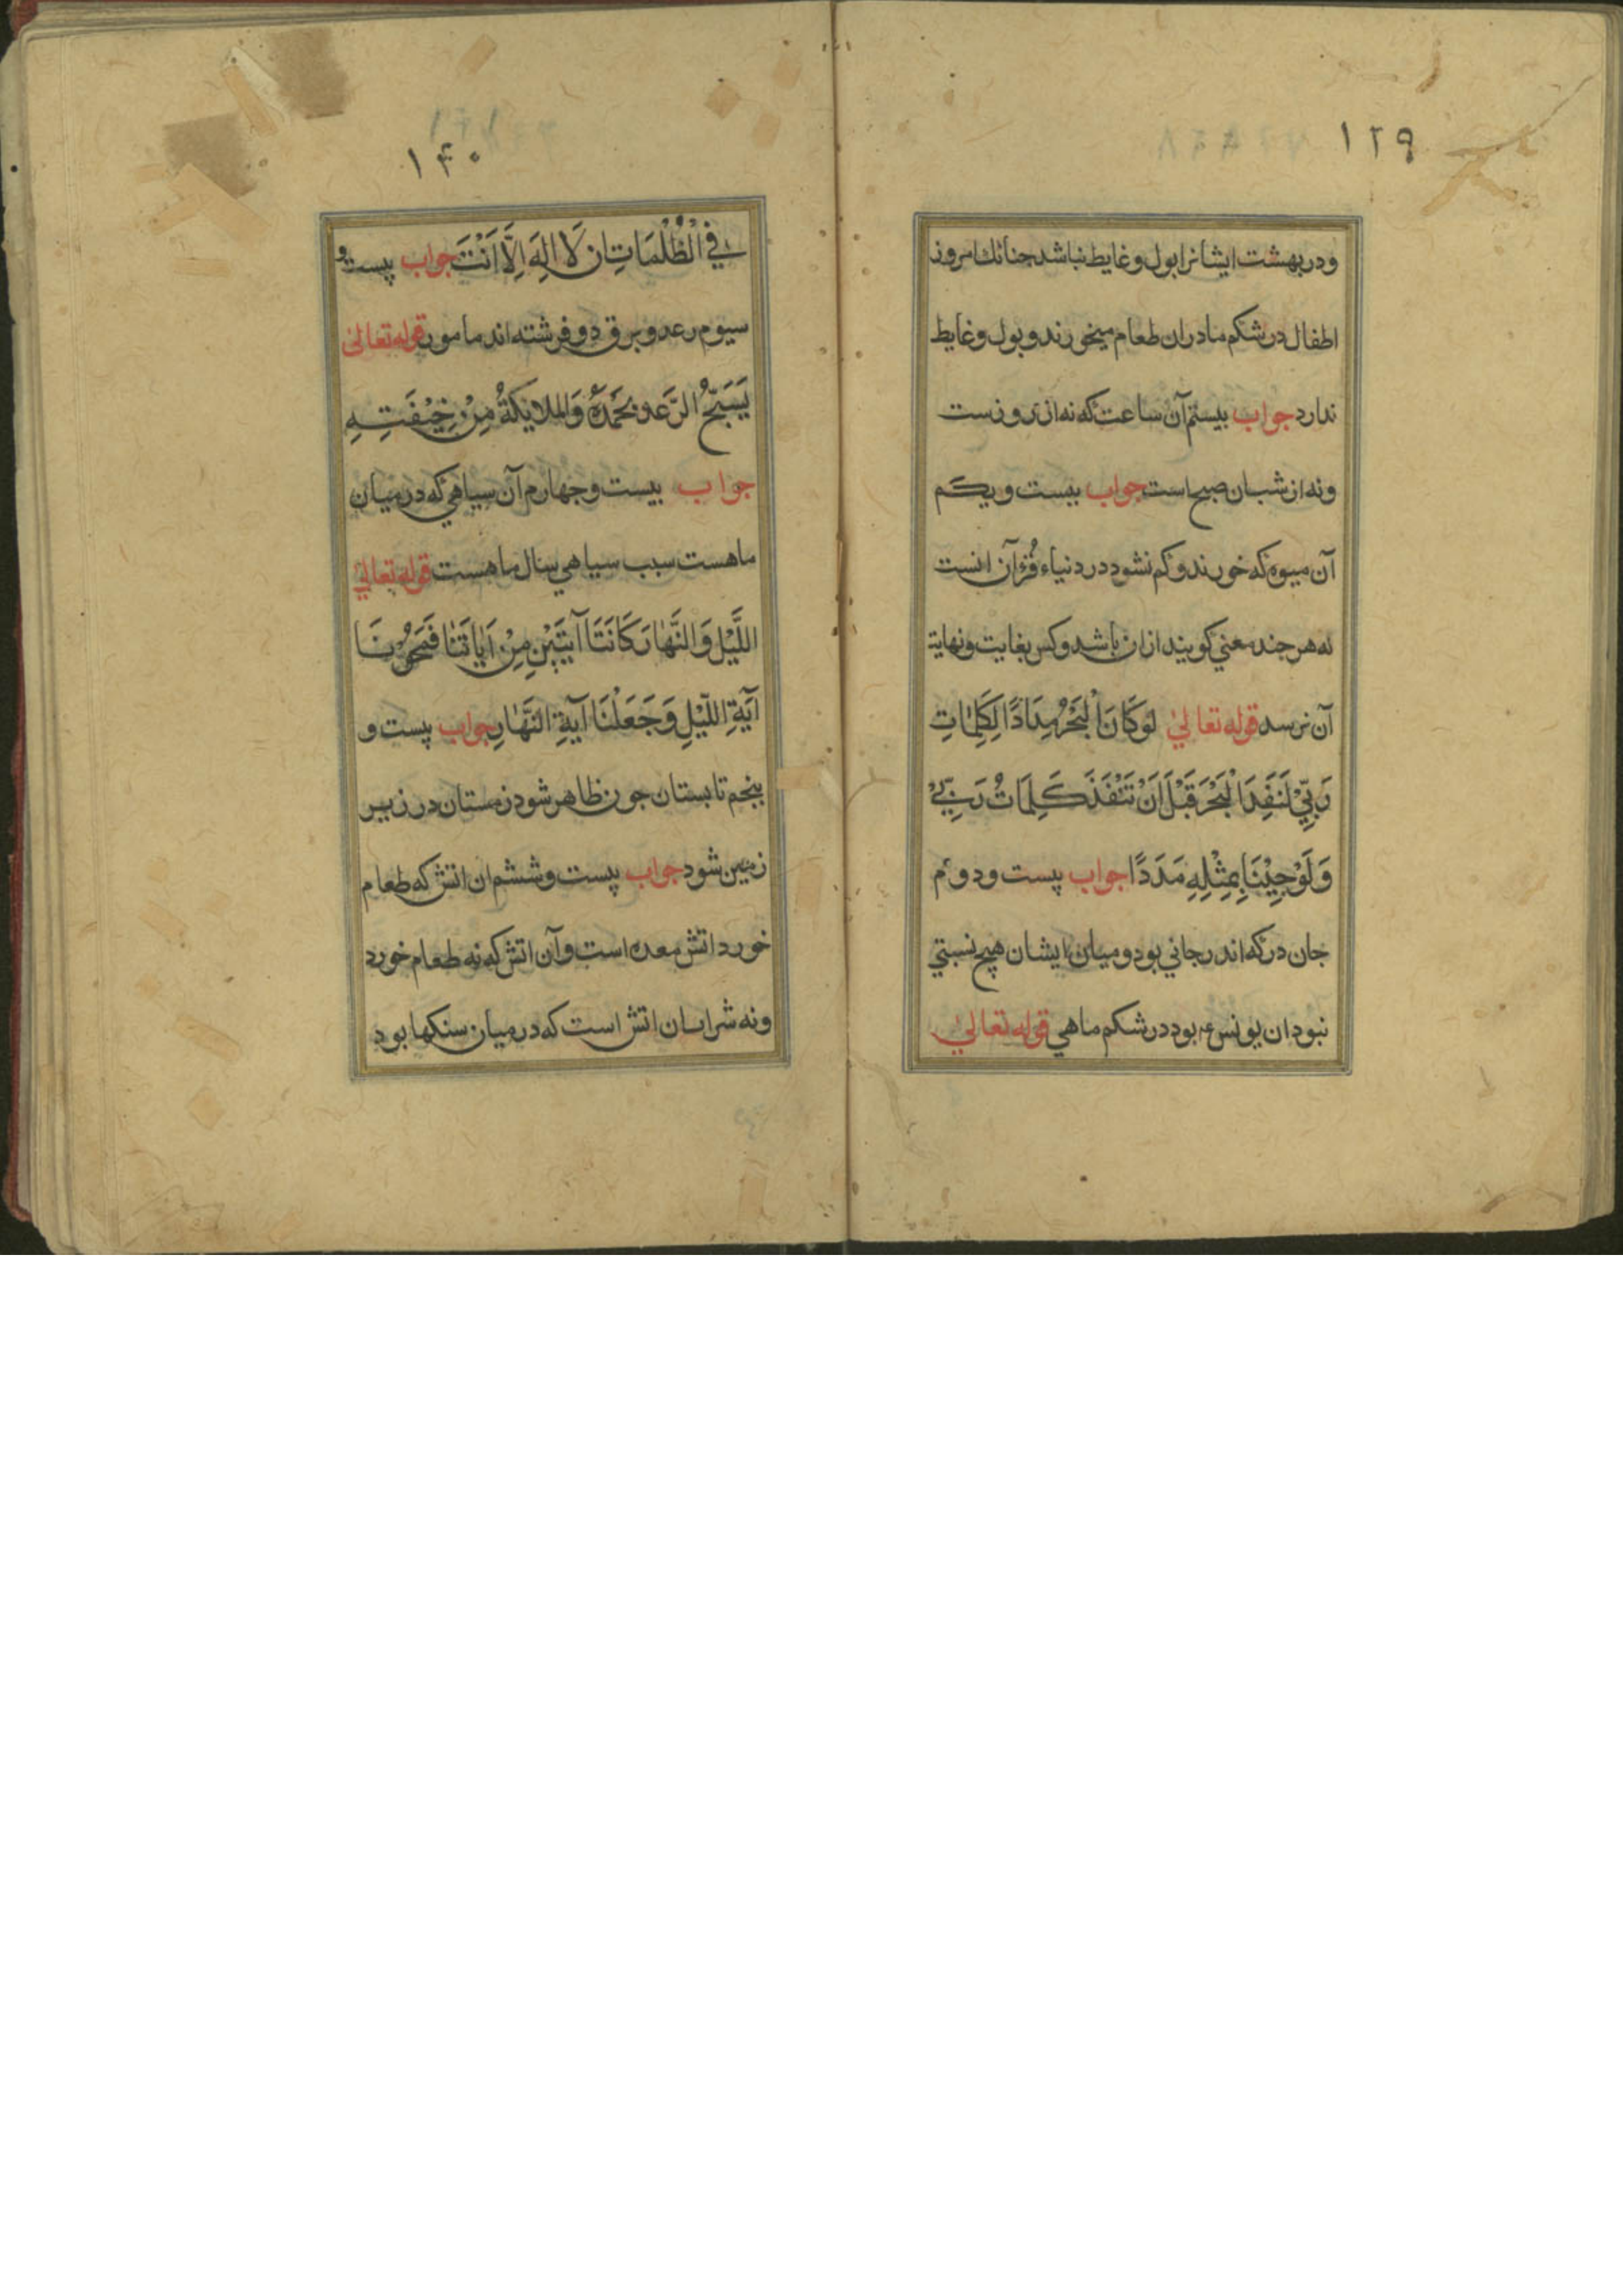 ١٢٩
ودر بهشت ایشانرا بول وغایط نباشد جنانك امروز
اطفال در شکم مادران طعام میخورند و بول وغایط
ندارد جواب بیستم آن ساعت که نه از روزست
ونه از شب ان صبح است جواب بیست و یکم
آن میوه که خورند و کم نشود در دنیا قُرْآن انست
که هر جند معنی کویند از ان باشد و کس بغایت و نهایة
آن نرسد قوله تعالیٰ لَوکَانَ الْبَحْرُ مِدَادًا لِکَلِمَاتِ
رَبِّیْ لَنَفِدَ الْبَحْرَ قَبْلَ اَنْ تَنْفَذَ کَلِمَاتُ رَبِّیْ
وَلَوْجِیْنَا بِمِثْلِهِ مَدَدًا جواب پیست ودوم
جان در که اندر جانی بود و میان ایشان هیچ نسبتی
نبود ان یونس ع بود در شکم ماهی قوله تعالیٰ
١۴٠
فِی الْظُلْمَاتِ ان لَا اِلهَ اِلَّا اَنْتَ جواب پیست و
سیوم رعد و برق دو فرشته اند مامور قوله تعالیٰ
یَسَبّحُ الرَّعدو بحَمْدِهٖ وَالملایکَةُ مِنْ خِیْفَتِهِ
جواب بیست وجهارم آن سیاهی که در میان
ماهست سبب سیاهی سال ماهست قوله تعالیٰ
اللَّیْلَ وَالنَّهارَ کَانَتَا آیَتَیْنِ مِنْ اٰیاتَنٰا فَمَحَوْنَا
آیَةِ اللّیْلِ وَجَعَلْنَا آیَةِ النَّهارِ جواب پیست و
پنجم تابستان جون ظاهر شود زمستان در زیر
زمین شود جواب پیست وششم ان اتش که طعام
خورد اتش معده است وآن اتش که نه طعام خورد
ونه شراب ان اتش است که در میان سنکها بود